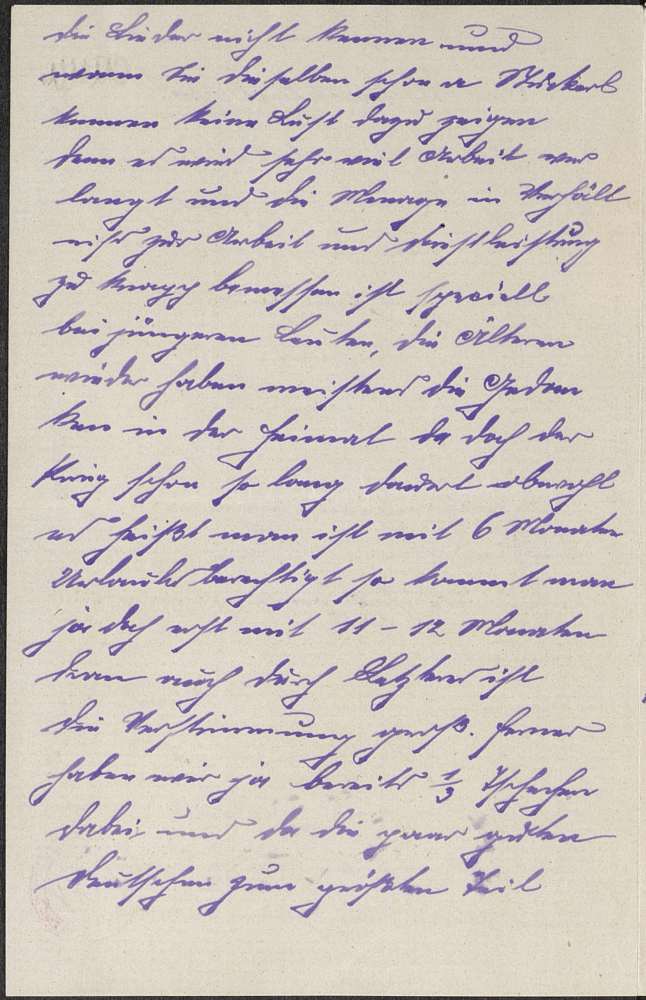 die Lieder nicht kennen und
wenn sie dieselben schon a Stückerl
kennen keine Lust dazu zeigen
denn es wird sehr viel Arbeit ver
langt und die Menage in Verhält
niss zur Arbeit und Dienstleistung
zu knapp bemessen ist speciell
bei jüngeren Leuten, die Älteren
wieder haben meistens die Gedan
ken in der Heimat da doch der
Krieg schon so lang dauert obwohl
es heißt man ist mit 6 Monaten
Urlaubs berechtigt so kommt man
ja doch erst mit 11 - 12 Monaten
dran auch durch Letzteres ist
die Verstimmung groß. Ferner
haben wir ja bereits 1/3 Tschechen
dabei und da die paar guten
Deutschen zum größten Teil